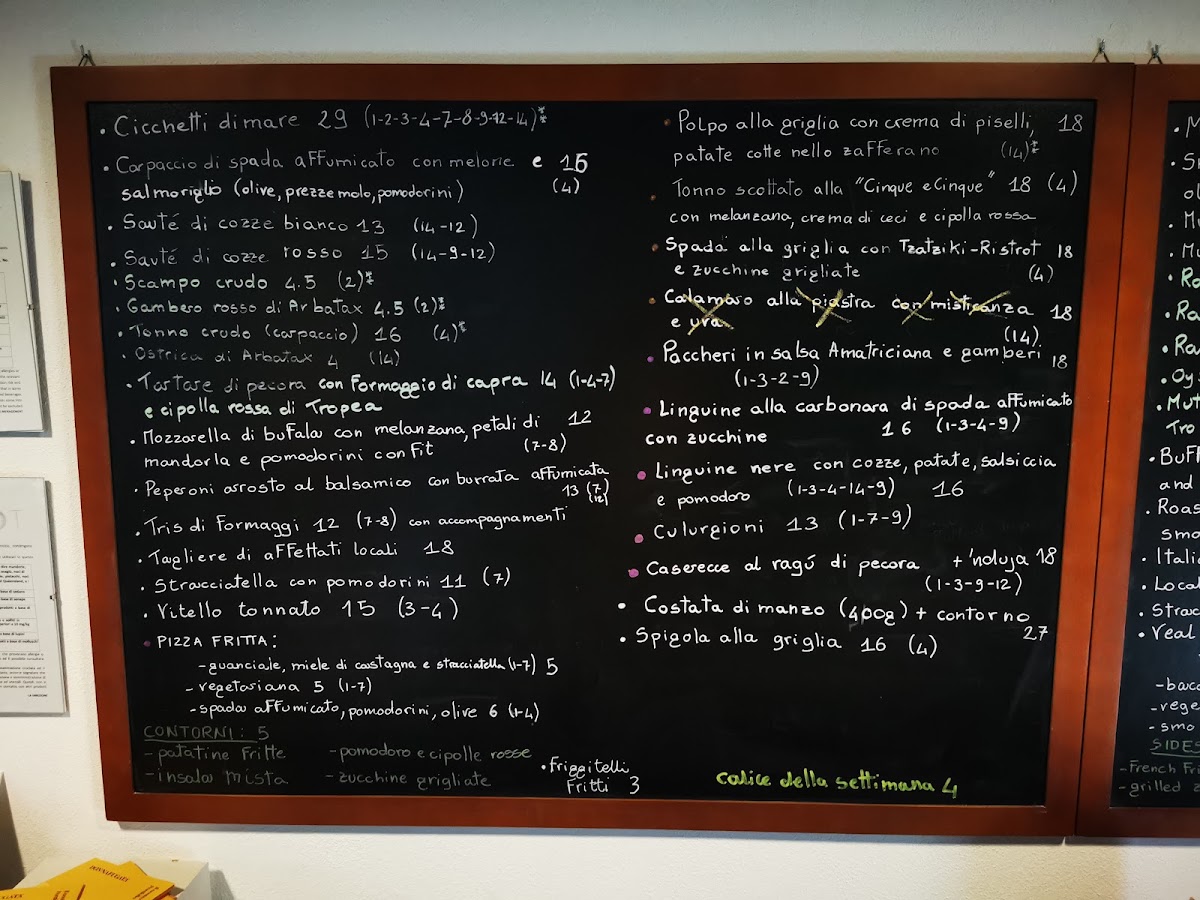 • Cicchetti di mare 29 (1-2-3-4-7-8-9-12-14)*
• Carpaccio di spada affumicato con melone e 16
salmoriglio (olive, prezzemolo, pomodorini) (4)
• Sauté di cozze bianco 13 (14-12)
• Sauté di cozze rosso 15 (14-9-12)
• Scampo crudo 4.5 (2)*
• Gambero rosso di Arbatax 4.5 (2)*
• Tonno crudo (carpaccio) 16 (4)*
• Ostrica di Arbatax 4 (14)
• Tartare di pecora con formaggio di capra 14 (1-4-7)
e cipolla rossa di Tropea
• Mozzarella di bufala con melanzana, petali di 12
mandorla e pomodorini con fit (7-8)
• Peperoni arrosto al balsamico con burrata affumicata
13 (7
12)
• Tris di Formaggi 12 (7-8) con accompagnamenti
• Tagliere di affettati locali 18
• Stracciatella con pomodorini 11 (7)
• Vitello tonnato 15 (3-4)
• PIZZA FRITTA:
- guanciale, miele di castagna e stracciatella (1-7) 5
- vegetariana 5 (1-7)
- spada affumicato, pomodorini, olive 6 (1-4)
CONTORNI: 5
- patatine fritte
- insala mista
- pomodoro e cipolle rosse
- zucchine grigliate
• Friggitelli
Fritti 3
• Polpo alla griglia con crema di piselli, 18
patate cotte nello zafferano (14)*
• Tonno scottato alla "Cinque e Cinque" 18 (4)
con melanzana, crema di ceci e cipolla rossa
• Spada alla griglia con Tzatziki-Ristrot 18
e zucchine grigliate (4)
• Calamaro alla piastra con misticanza 18
e uva (14)
• Paccheri in salsa Amatriciana e gamberi 18
(1-3-2-9)
• Linguine alla carbonara di spada affumicato
con zucchine 16 (1-3-4-9)
• Linguine nere con cozze, patate, salsiccia
e pomodoro (1-3-4-14-9) 16
• Culurgioni 13 (1-7-9)
• Caserecce al ragú di pecora + 'nduja 18
(1-3-9-12)
• Costata di manzo (400g) + contorno
27
• Spigola alla griglia 16 (4)
calice della settimana 4
• M
• Mu
• Mu
• Ra
• Ra
• Oy
• Mut
Tro
• Buff
and
• Roas
smo
• Itali
• Loca
• Strac
• Veal
- vege
- smo
SIDES
- French Fri
- grilled z